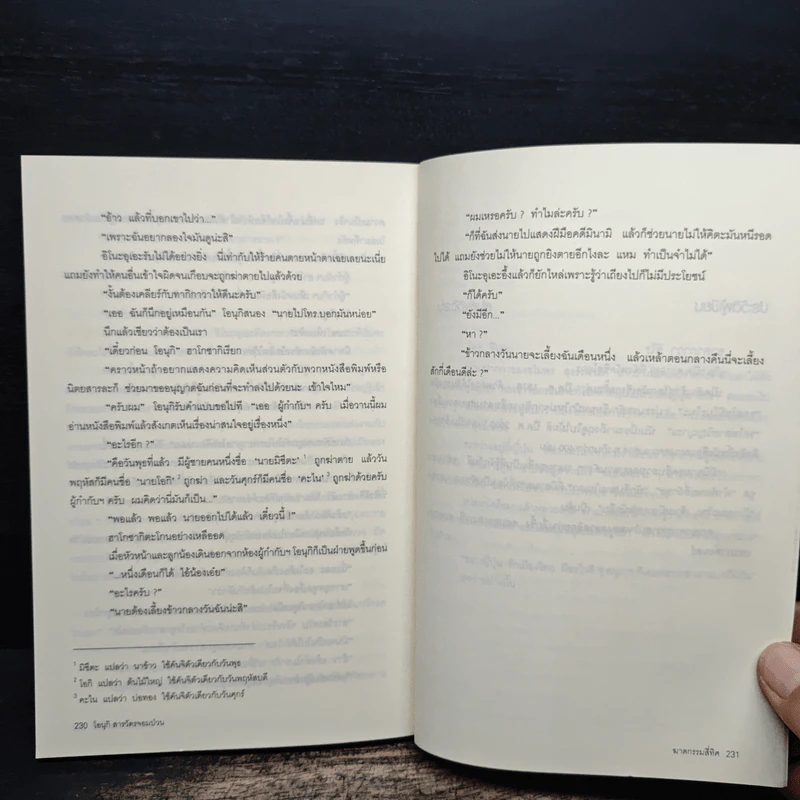 “อ้าว แล้วที่บอกเขาไปว่า...”
“เพราะฉันอยากลองใจมันดูน่ะสิ”
อิโนะอุเอะรับไม่ได้อย่างยิ่ง นี่เท่ากับให้ร้ายคนตายหน้าตาเฉยเลยน่ะเนี่ย
แถมยังทำให้คนอื่นเข้าใจผิดจนเกือบจะถูกฆ่าตายไปแล้วด้วย
“งั้นต้องเคลียร์กับทากิกาวาให้ดีนะครับ”
“เออ ฉันก็นึกอยู่เหมือนกัน” โอนุกิสนอง “นายไปโทร.บอกมันหน่อย”
นึกแล้วเชียวว่าต้องเป็นเรา
“เดี๋ยวก่อน โอนุกิ” ฮาโกซากิเรียก
“คราวหน้าถ้าอยากแสดงความคิดเห็นส่วนตัวกับพวกหนังสือพิมพ์หรือ
นิตยสารละก็ ช่วยมาขออนุญาตฉันก่อนที่จะทำลงไปด้วยนะ เข้าใจไหม”
“ครับผม” โอนุกิรับคำแบบขอไปที “เออ ผู้กำกับฯ ครับ เมื่อวานนี้ผม
อ่านหนังสือพิมพ์แล้วสังเกตเห็นเรื่องน่าสนใจอยู่เรื่องหนึ่ง”
“อะไรอีก ?”
“คือวันพุธที่แล้ว มีผู้ชายคนหนึ่งชื่อ ‘นายมิซึตะ’ ¹ ถูกฆ่าตาย แล้ววัน
พฤหัสก็มีคนชื่อ ‘นายโอกิ’ ² ถูกฆ่า และวันศุกร์ก็มีคนชื่อ ‘คะไน’ ³ ถูกฆ่าด้วยครับ
ผู้กำกับฯ ครับ ผมคิดว่านี่มันก็เป็น...”
“พอแล้ว พอแล้ว นายออกไปได้แล้ว เดี๋ยวนี้ !”
ฮาโกซากิตะโกนอย่างเหลืออด
เมื่อหัวหน้าและลูกน้องเดินออกจากห้องผู้กำกับฯ โอนุกิก็เป็นฝ่ายพูดขึ้นก่อน
“...หนึ่งเดือนก็ได้ ไอ้น้องเอ๋ย”
“อะไรครับ ?”
“นายต้องเลี้ยงข้าวกลางวันฉันน่ะสิ”
¹ มิซึตะ แปลว่า นาข้าว ใช้คันจิตัวเดียวกับวันพุธ
² โอกิ แปลว่า ต้นไม้ใหญ่ ใช้คันจิตัวเดียวกับวันพฤหัสบดี
³ คะไน แปลว่า บ่อทอง ใช้คันจิตัวเดียวกับวันศุกร์
230 โอนุกิ สารวัตรจอมป่วน
“ผมเหรอครับ ? ทำไมล่ะครับ ?”
“ก็ที่ฉันส่งนายไปแสดงฝีมือคดีมินามิ แล้วก็ช่วยนายไม่ให้คิตะมันหนีรอด
ไปได้ แถมยังช่วยไม่ให้นายถูกยิงตายอีกไงละ แหม ทำเป็นจำไม่ได้”
อิโนะอุเอะอึ้งแล้วก็ยักไหล่เพราะรู้ว่าเถียงไปก็ไม่มีประโยชน์
“ก็ได้ครับ”
“ยังมีอีก...”
“หา ?”
“ข้าวกลางวันนายจะเลี้ยงฉันเดือนหนึ่ง แล้วเหล้าตอนกลางคืนนี่จะเลี้ยง
สักกี่เดือนดีล่ะ ?”
ฆาตกรรมสี่ทิศ 231